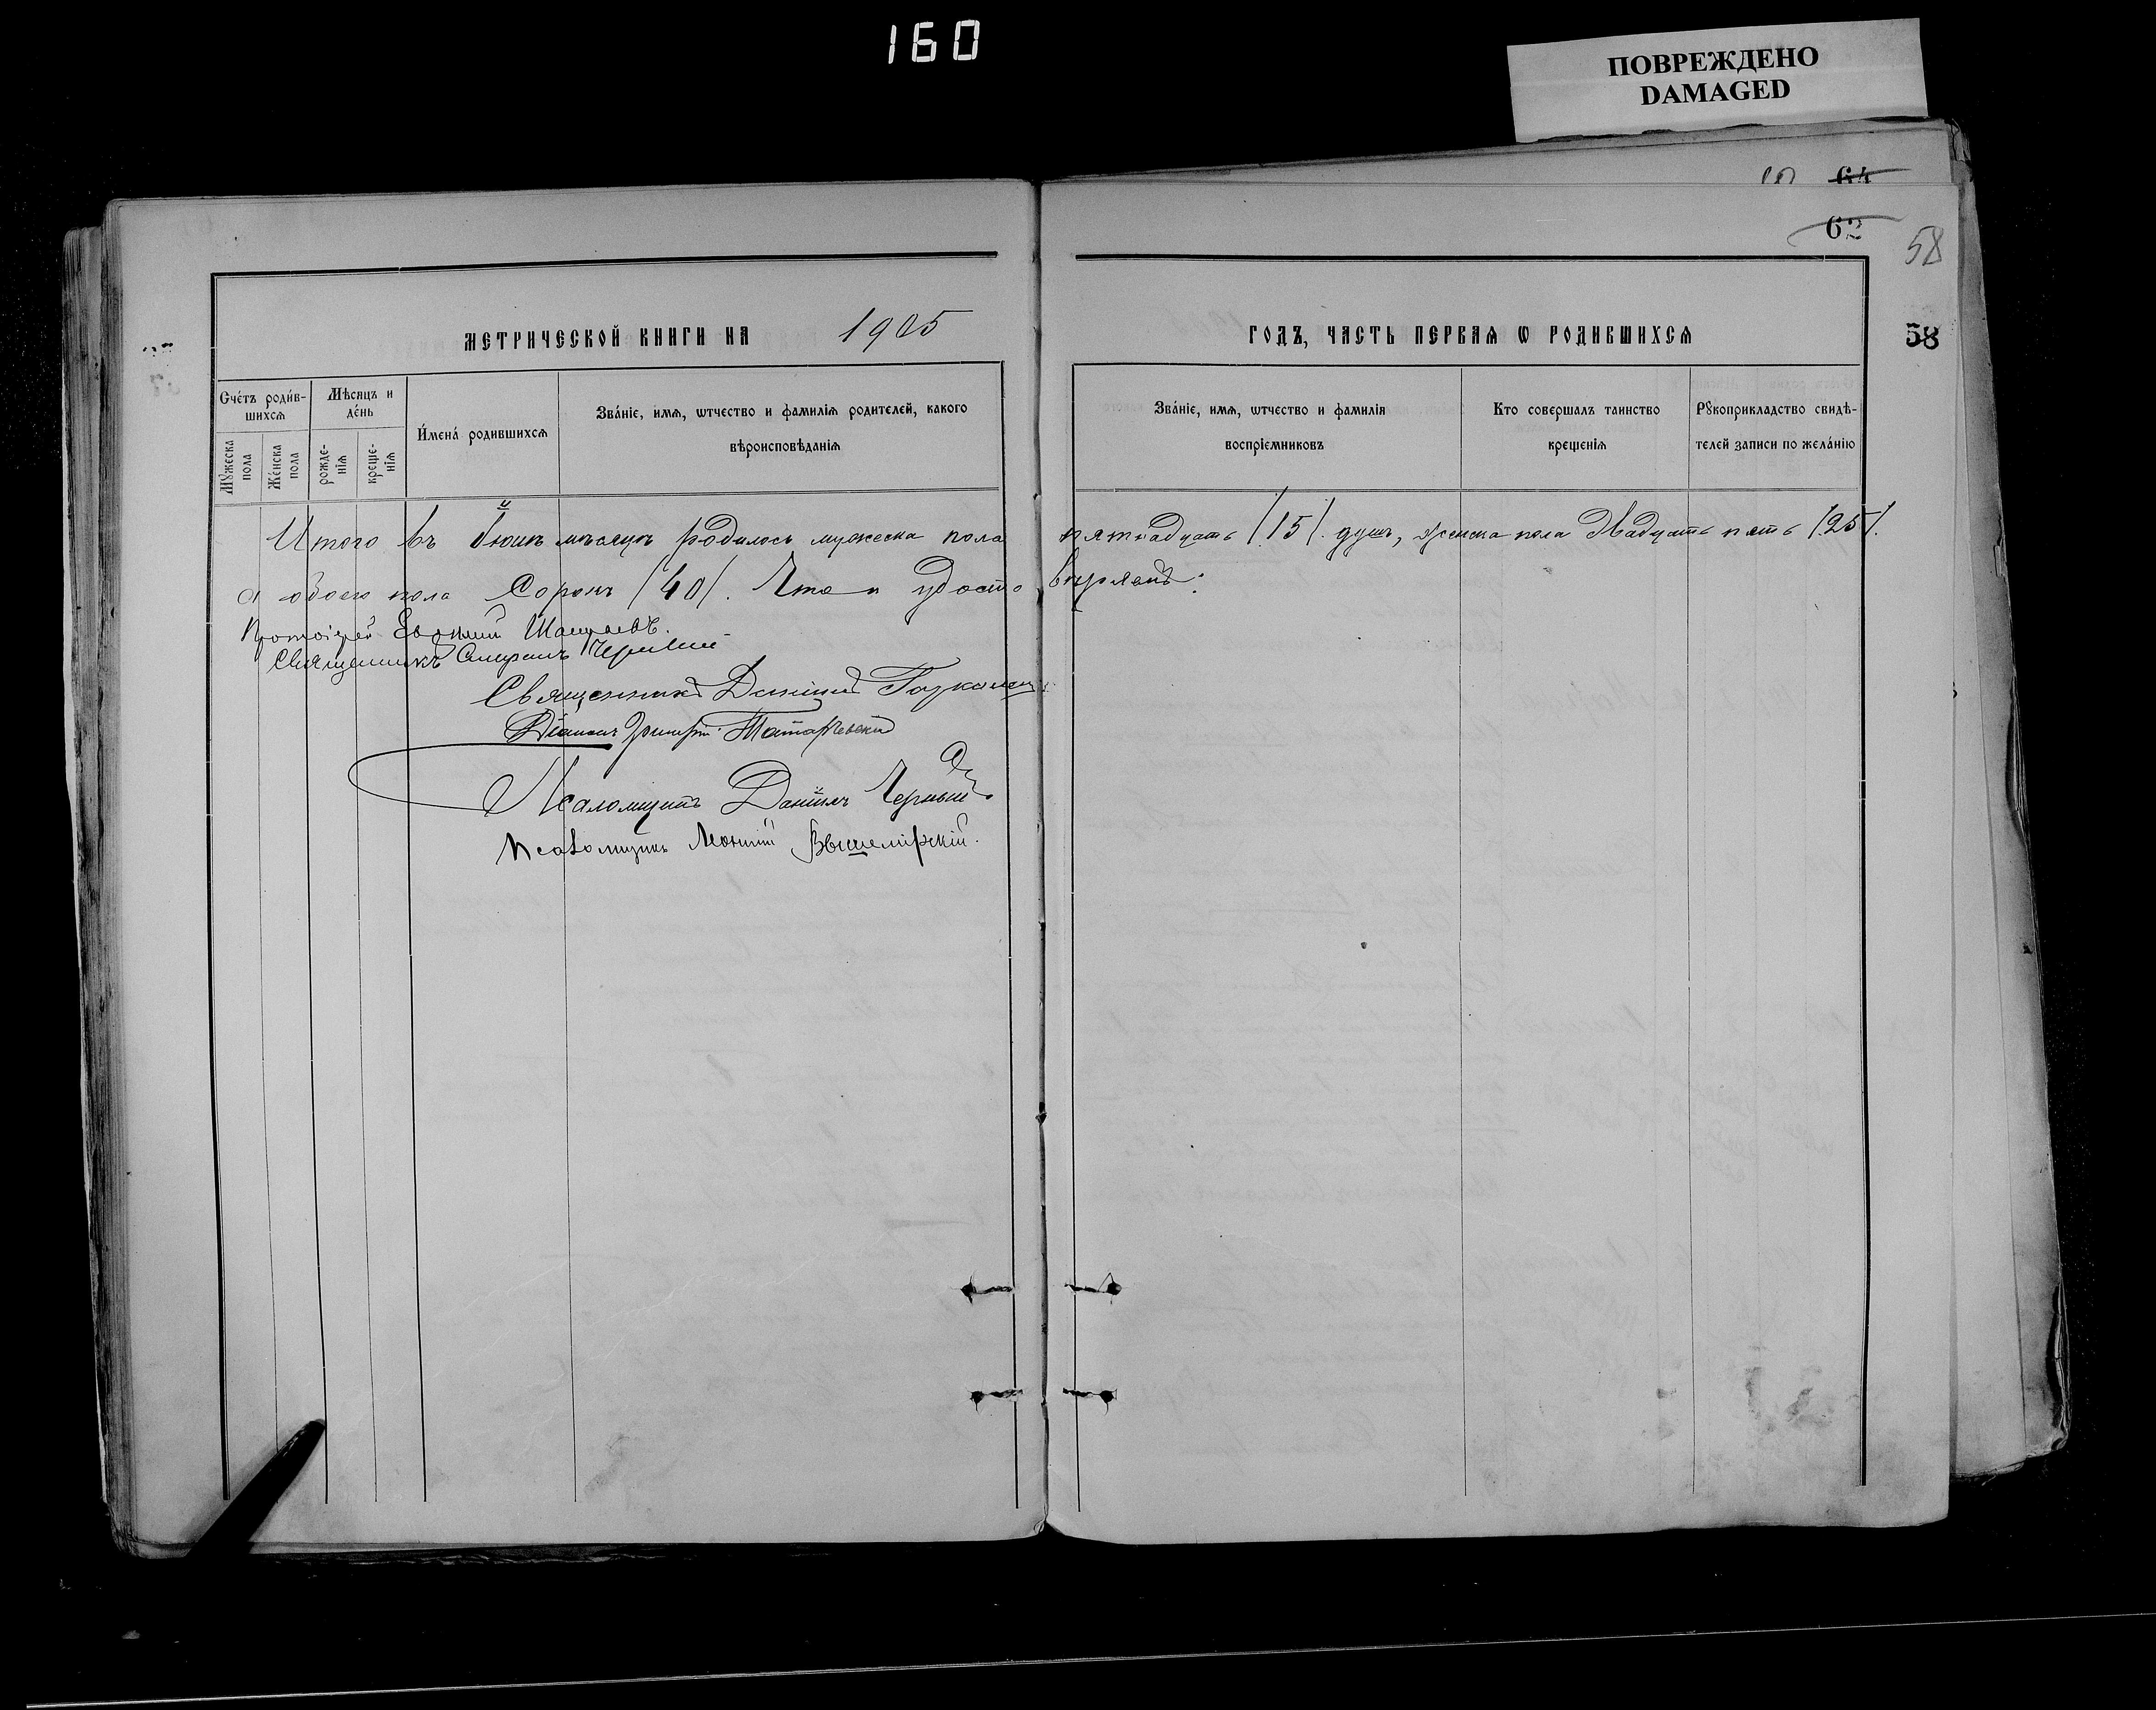 160
ПОВРЕЖДЕНО
DAMAGED
64
62
58
58
МЕТРИЧЕСКОЙ КНИГИ НА 1905
ГОДЪ, ЧАСТЬ ПЕРВАѦ Ѡ РОДИВШИХСѦ
Счётъ роди́вшихсѧ
Мꙋжеска пола
Же́нска пола
Мѣсяцъ и де́нь
рожде-нїѧ
креще-нїѧ
И́мена́ родившихсѧ
Зва́нїе, имѧ, ѡтчество и фамилїѧ родителей, какого вѣроисповѣданїѧ
Зва́нїе, имѧ, ѡтчество и фамилїѧ воспрїемниковъ
Кто совершалъ таинство крещенїѧ
Рꙋкоприкладство свидѣ-телей записи по жела́нїю
Итого въ Іюнѣ мѣсяцѣ родилось мужеска пола пятнадцать /15/. душъ, женска пола двадцать пять /25/.
а обоего пола сорокъ /40/. Что и удостовѣряемъ:
Протоіерей Евфимій
Священникъ
Священникъ
Діаконъ Григорій
Псаломщикъ Даніилъ Черный
Псаломщикъ Вышемірскій.